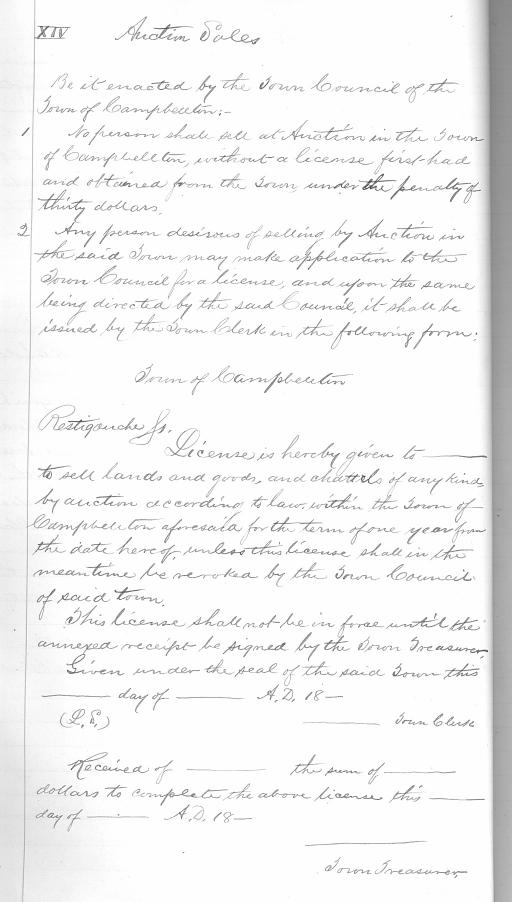 XIV Auction Sales
Be it enacted by the Town Council of the
Town of Campbellton:-
1 No person shall sell at Auction in the Town
of Campbellton, without a license first had
and obtained from the Town under the penalty of
thirty dollars.
2 Any person desirous of selling by Auction in
the said Town may make application to the
Town Council for a license, and upon the same
being directed by the said Council, it shall be
issued by the Town Clerk in the following form:
Town of Campbellton
Restigouche Ss.
License is hereby given to ———
to sell lands and goods, and chattels of any kind
by auction according to law, within the Town of
Campbellton aforesaid for the term of one year from
the date hereof, unless this license shall in the
meantime be revoked by the Town Council
of said town.
This license shall not be in force until the
annexed receipt be signed by the Town Treasurer.
Given under the seal of the said Town this
——— day of ——— A.D. 18—
(L.S.) ——— Town Clerk
Received of ——— the sum of ———
dollars to complete the above license this ———
day of ——— A.D. 18—
Town Treasurer